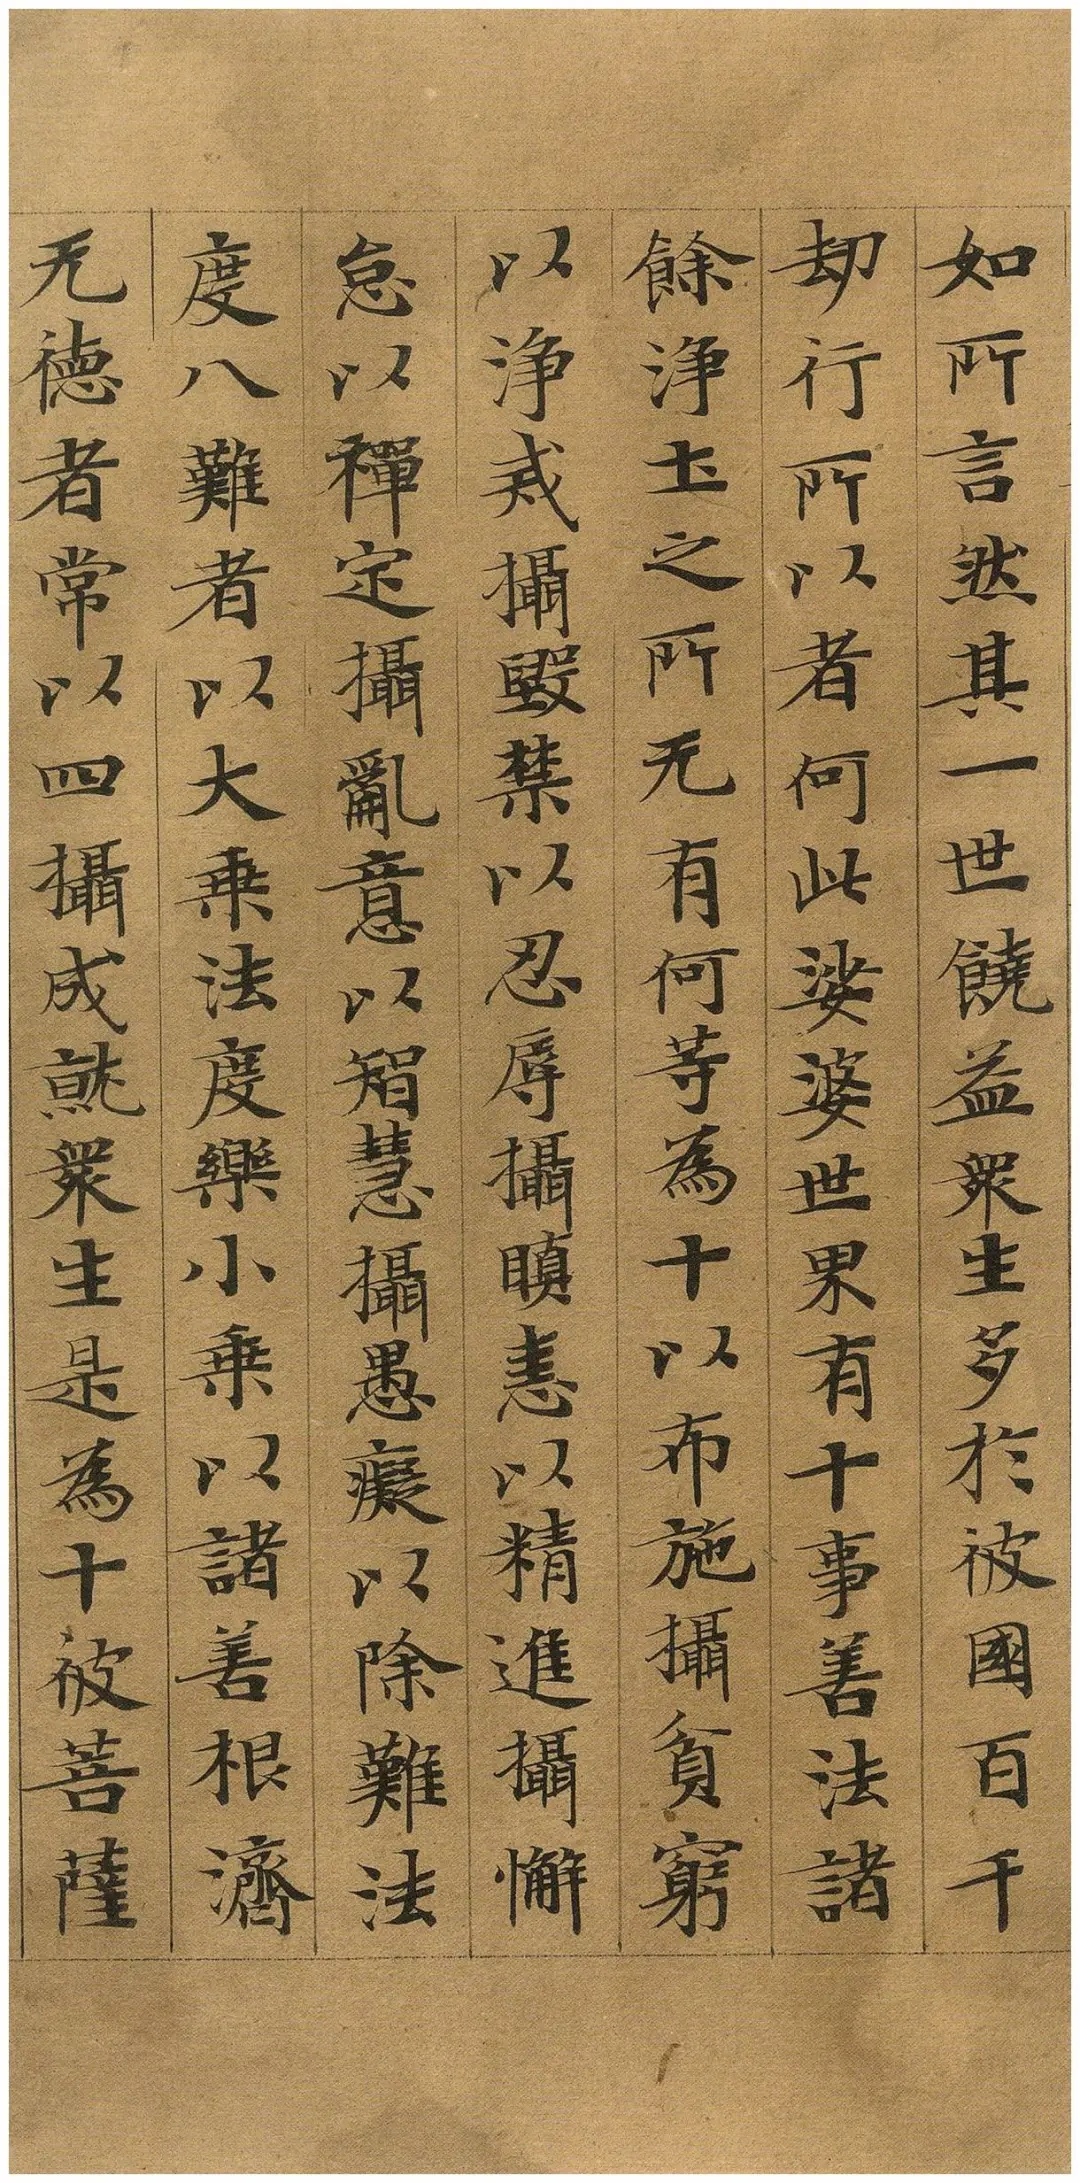 如所言然其一世饒益衆生多於彼國百千
劫行所以者何此娑婆世界有十事善法諸
餘浄土之所无有何等為十以布施攝貧窮
以浄戒攝毀禁以忍辱攝瞋恚以精進攝懈
怠以禪定攝亂意以智慧攝愚癡以除難法
度八難者以大乗法度樂小乗以諸善根濟
无徳者常以四攝成就衆生是為十彼菩薩